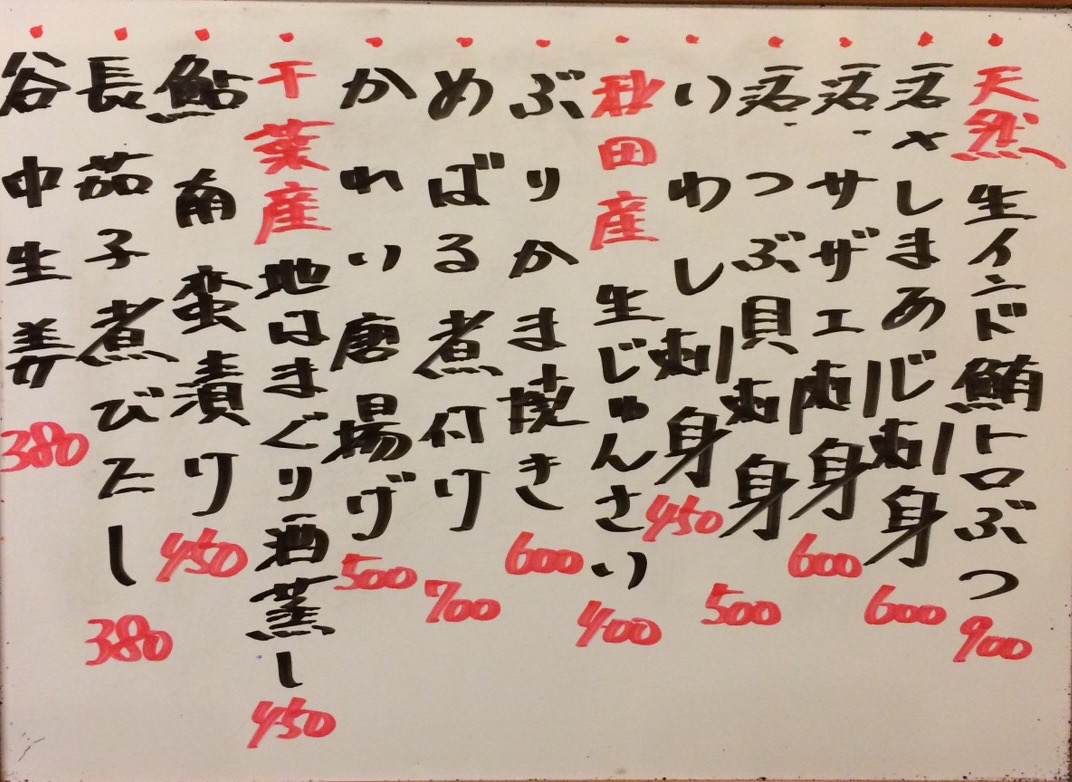 ・天然 生インド鮪トロぶつ 900
・活〆しまあじ刺身 600
・活サザエ刺身 600
・活つぶ貝刺身 500
・いわし刺身 450
・秋田産 生じゅんさい 400
・ぶりかま焼き 600
・めばる煮付け 700
・かれい唐揚げ 500
・千葉産 地はまぐり酒蒸し 450
・鮎南蛮漬け 450
・長茄子煮びたし 380
・谷中生姜 380